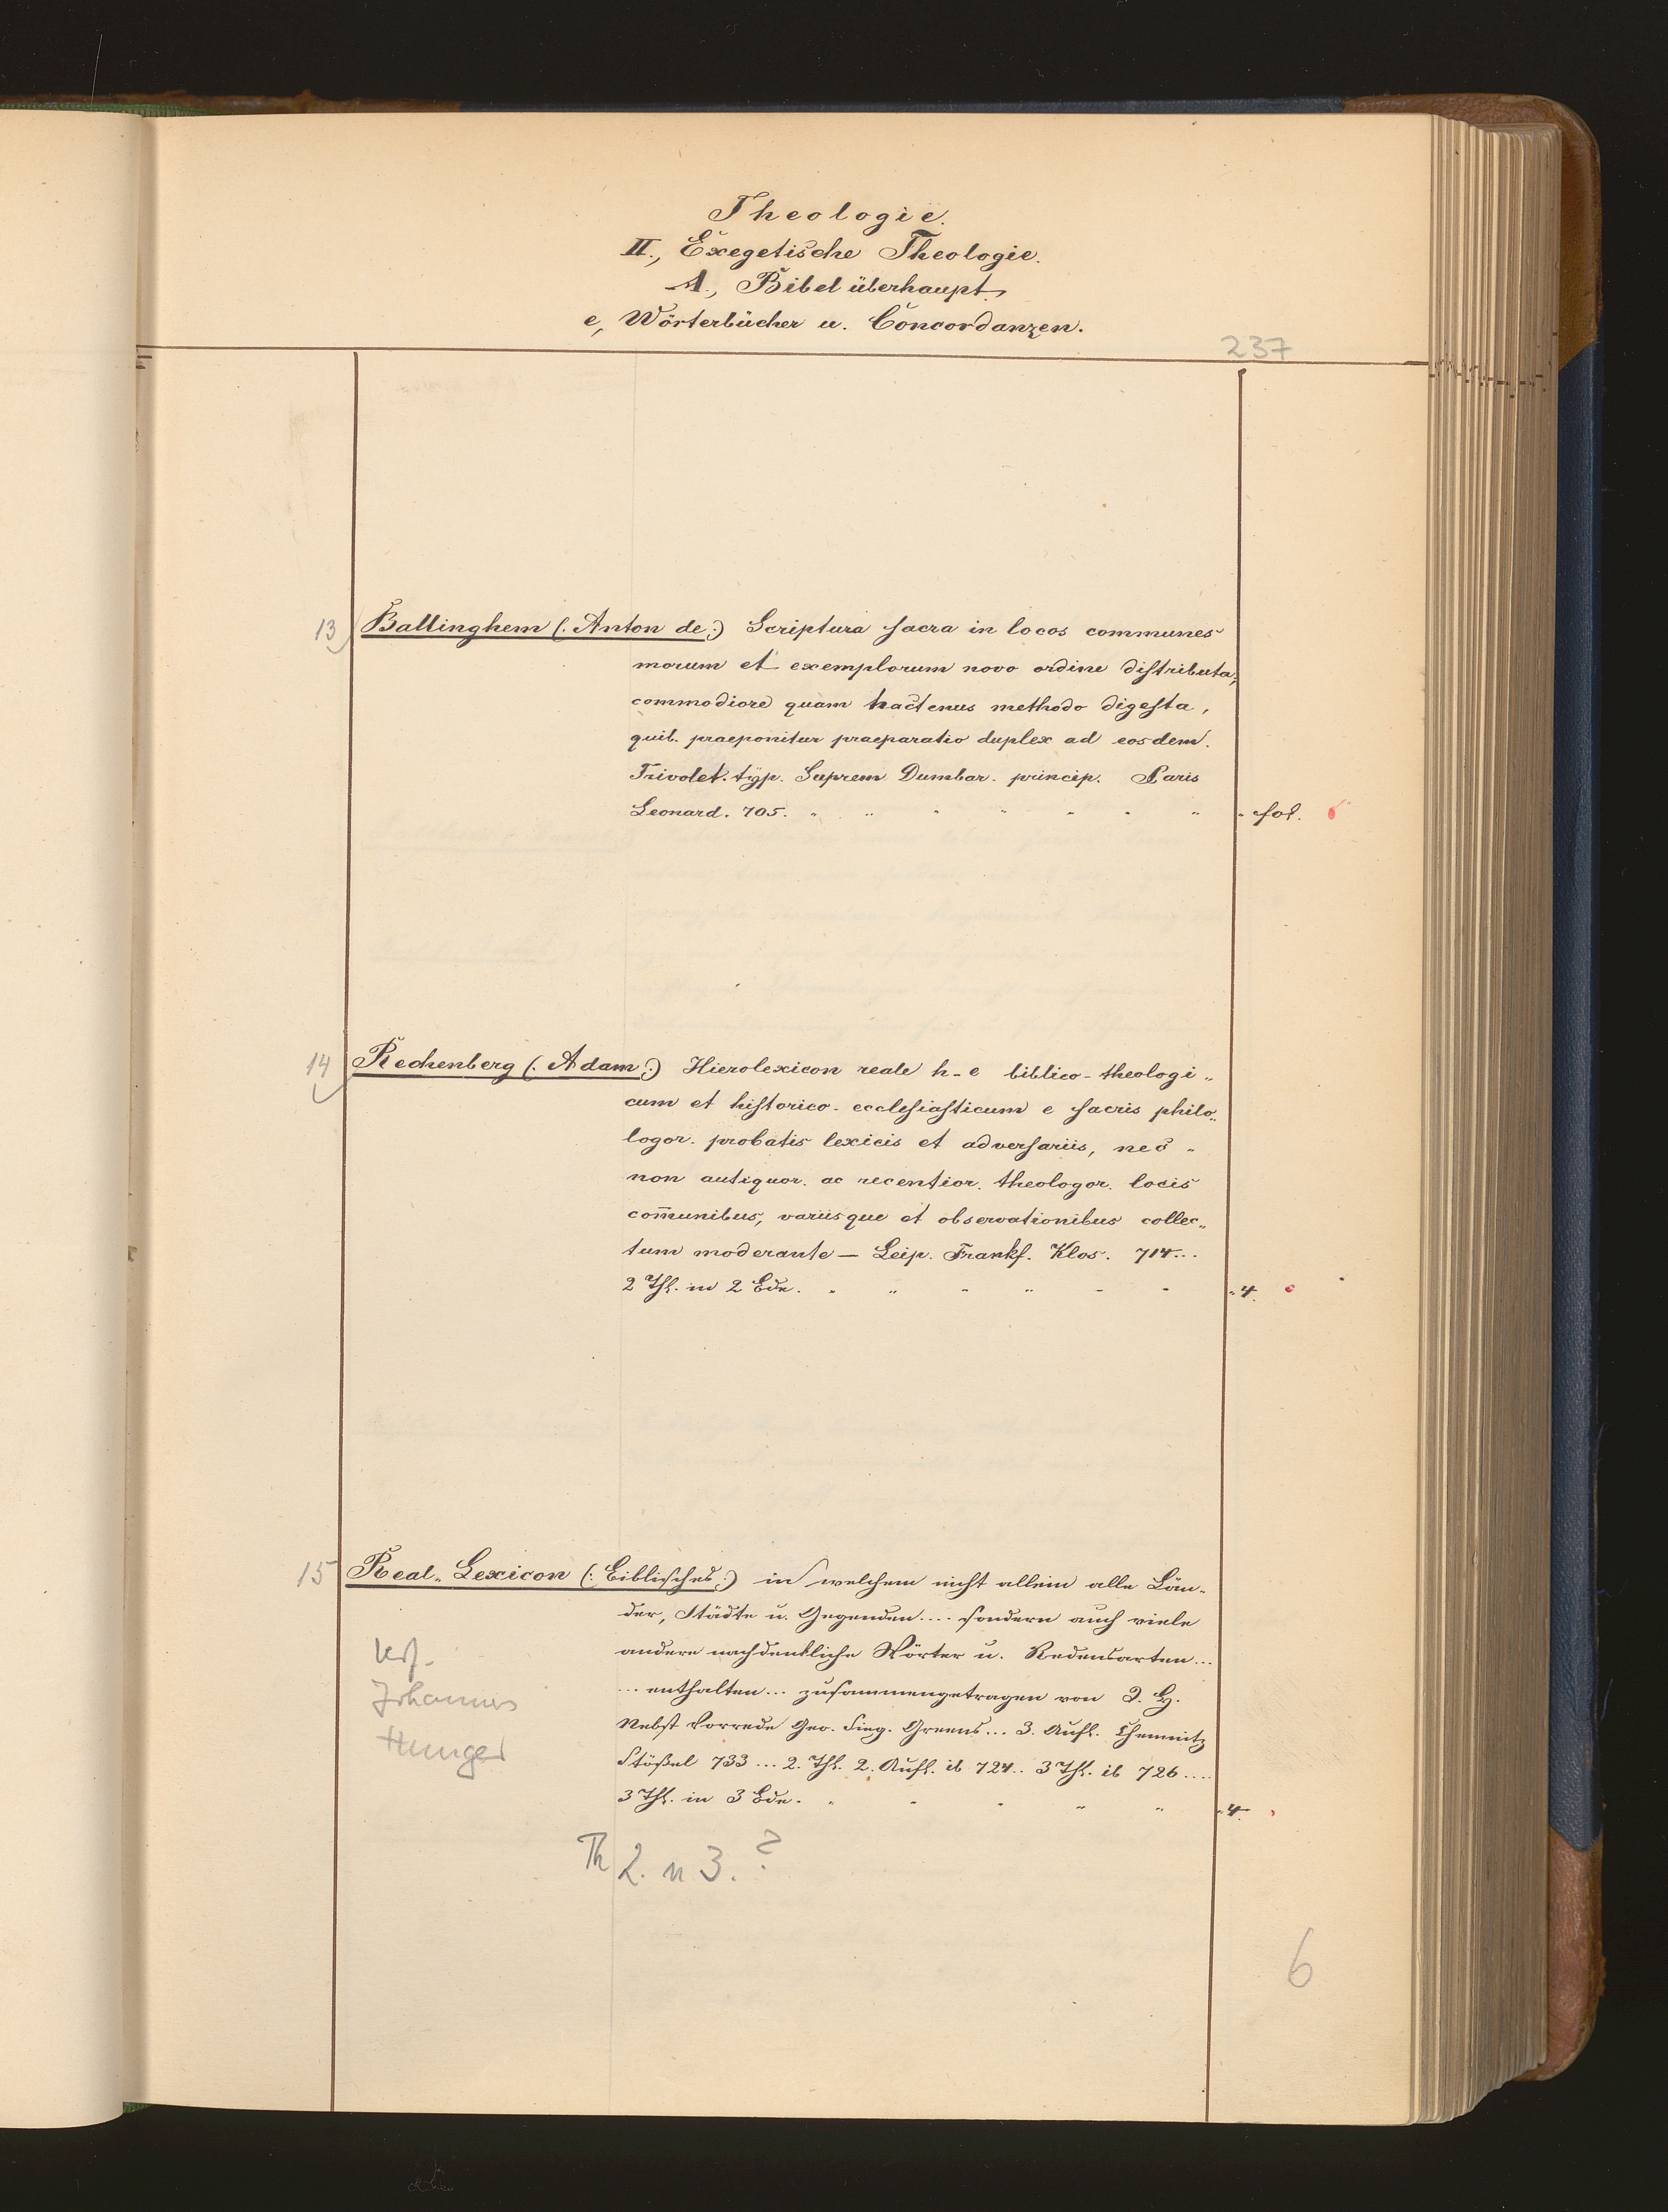 Theologie.
II., Exegetische Theologie.
A., Bibel überhaupt.
e, Wörterbücher u. Concordanzen.
237
13 Ballinghem (: Anton de :) Scriptura sacra in locos communes
morum et exemplorum novo ordine distributa,
commodiore quam hactenus methodo digesta,
quib. praeponitur praeparatio duplex ad eosdem.
Trivolet. typ. Suprem Dumbar. princip. Paris
Leonard. 705. fol.
14 Rechenberg (: Adam :) Hierolexicon reale h-e biblico-theologi-
cum et historico-ecclesiasticum e sacris philo-
logor. probatis lexicis et adversariis, nec-
non antiquor. ac recentior. theologor. locis
com̅unibus, variisque et observationibus collec-
tum moderante — Leip. Frankf. Klos. 714...
2 Thl. in 2 Bdn. 4.
15 Real-Lexicon (: Biblisches :) in welchem nicht allein alle Län-
der, Städte u. Gegenden.... sondern auch viele
andere nachdenkliche Wörter u. Redensarten...
... enthalten... zusammengetragen von J. H.
Nebst Vorrede Geo. Sieg. Greens... 3. Aufl. Chemnitz
Stößel 733... 2. Thl. 2. Aufl. ib 724.. 3 Thl. ib 726....
3 Thl. in 3 Bdn. 4.
Johannes
Hunger
Th 2. u 3. ?
6